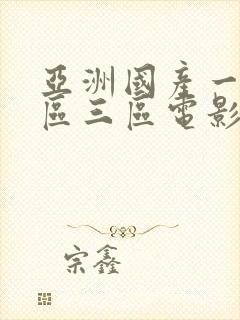 亞洲國產一
區三區電影
宗鑫